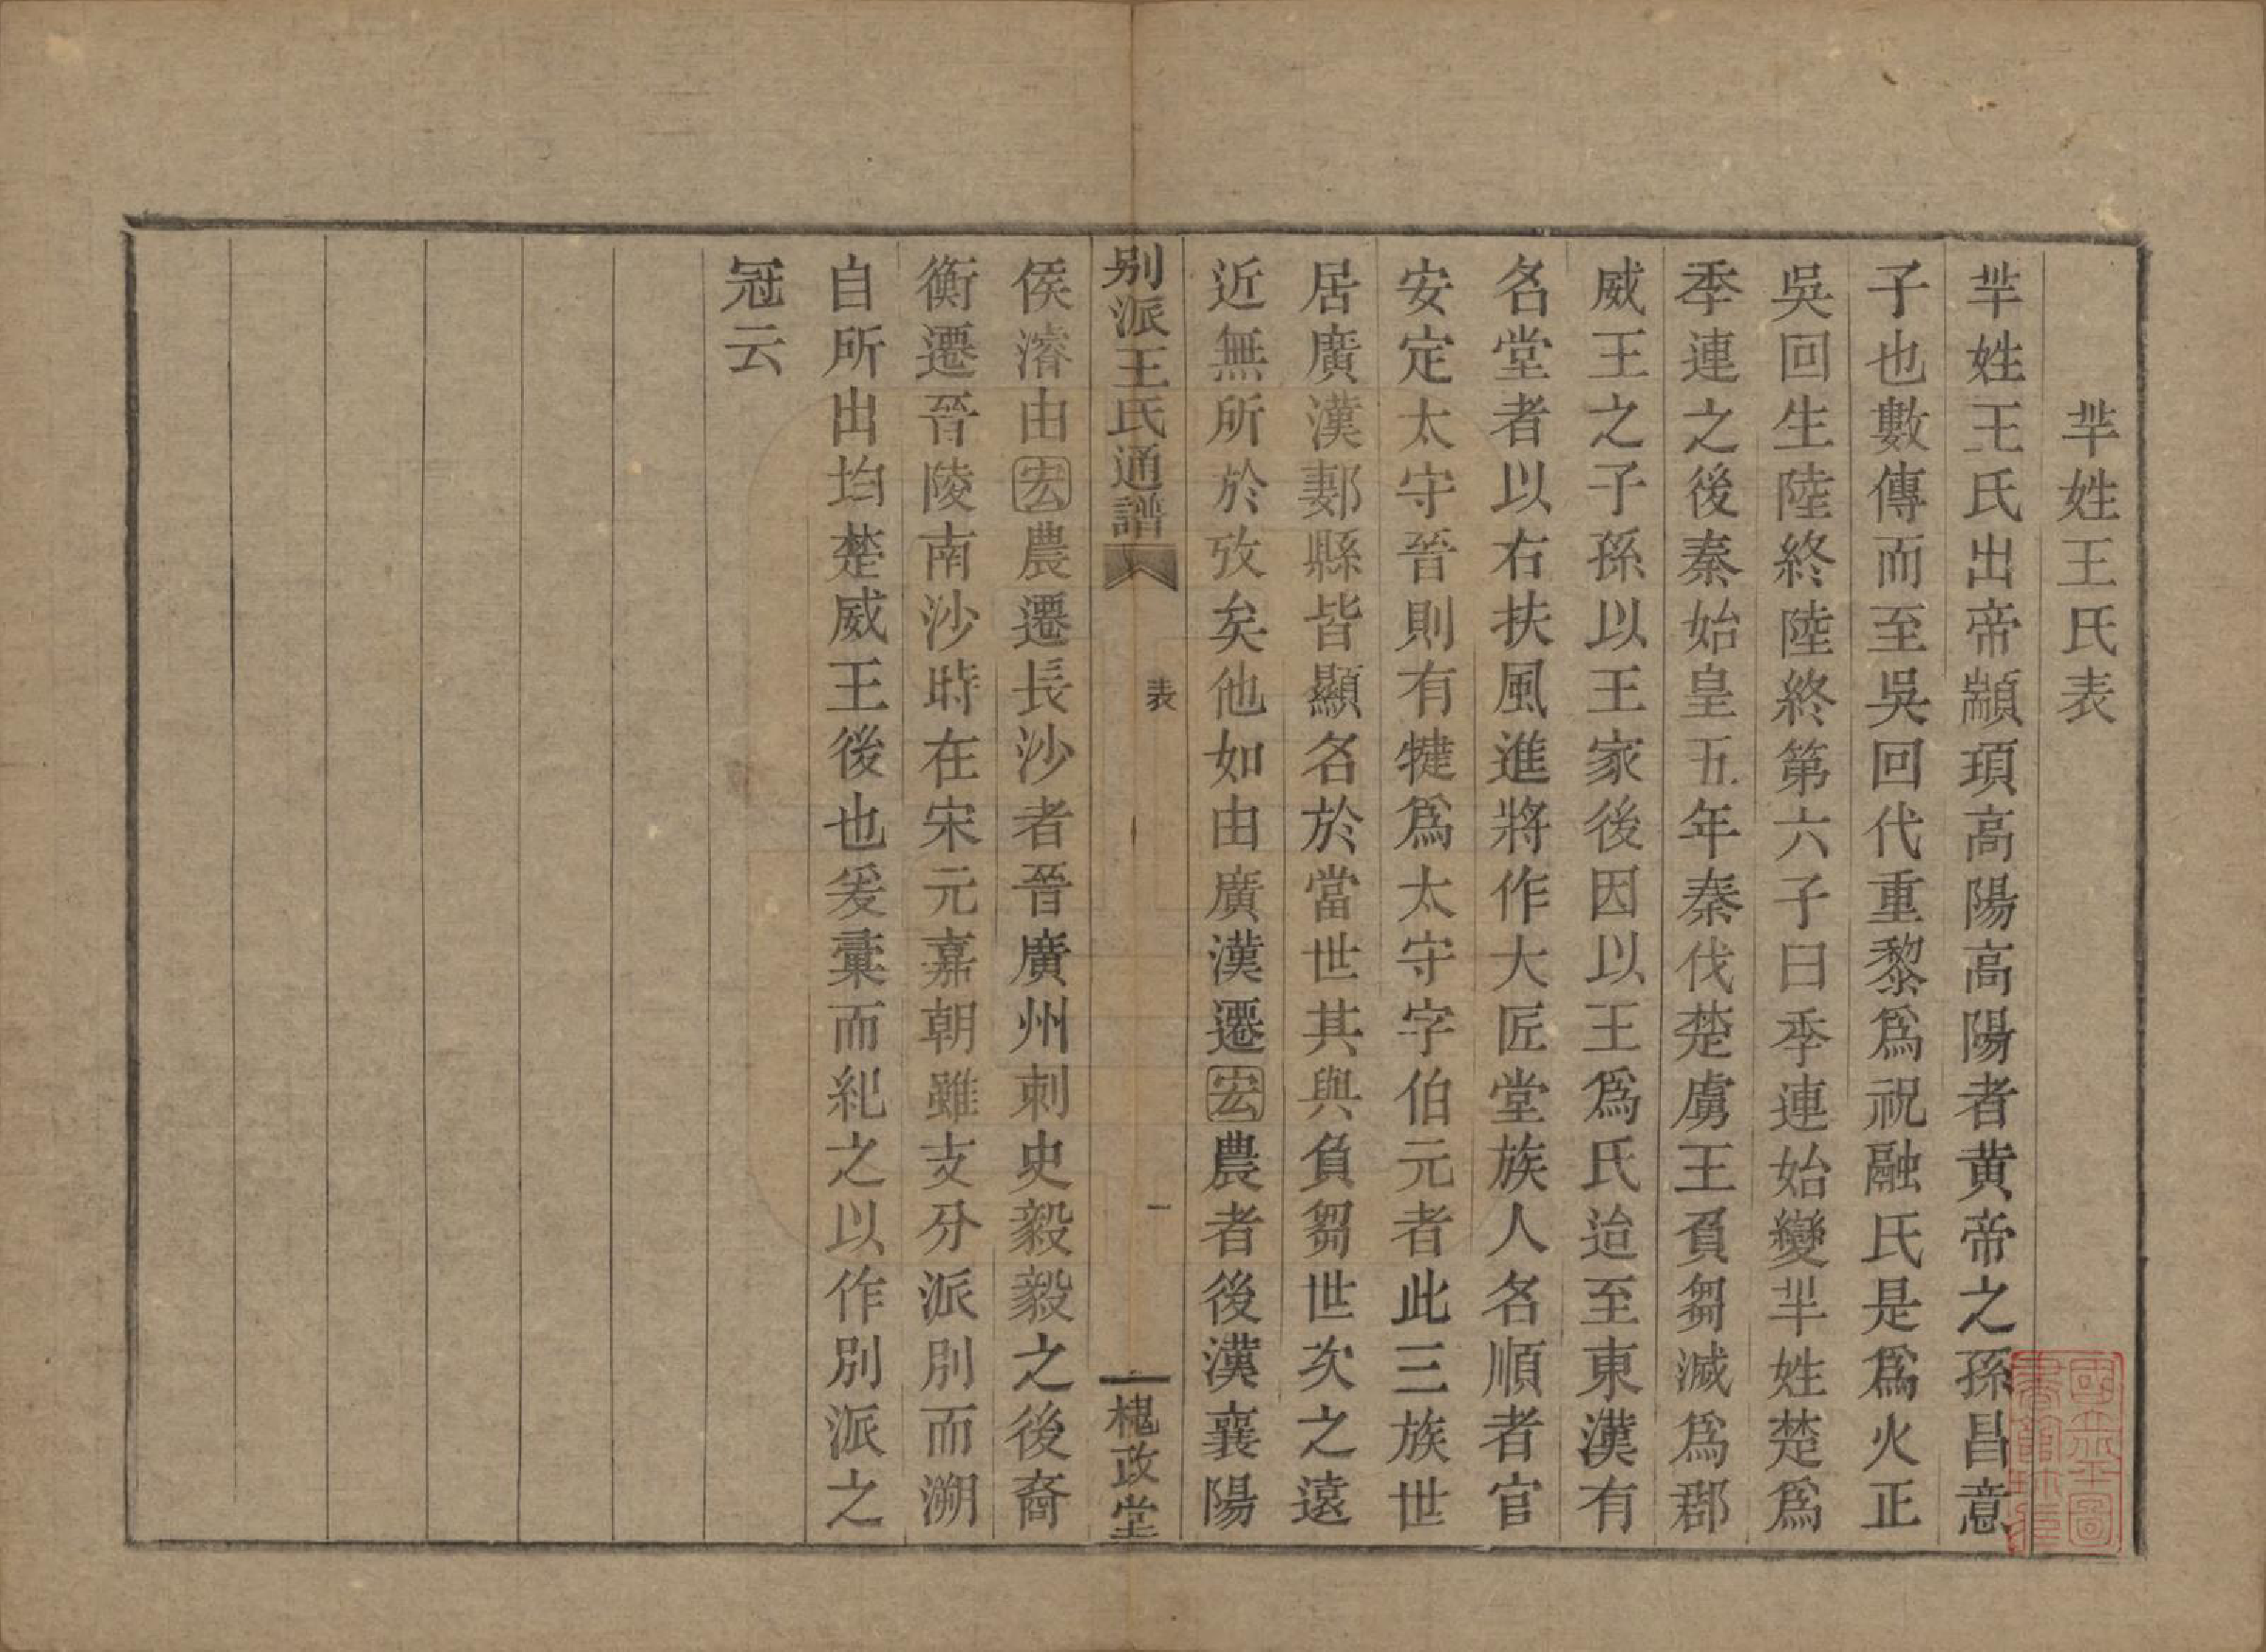 羋姓王氏表
羋姓王氏出帝顓頊高陽高陽者黄帝之孫昌意
子也數傳而至吳回代重黎爲祝融氏是爲火正
吳回生陸終陸終第六子曰季連始變羋姓楚爲
季連之後秦始皇五年秦伐楚虜王負芻滅爲郡
威王之子孫以王家後因以王爲氏迨至東漢有
名堂者以右扶風進將作大匠堂族人名順者官
安定太守晉則有犍爲太守字伯元者此三族世
居廣漢郪縣皆顯名於當世其與負芻世次之遠
近無所於攷矣他如由廣漢遷宏農者後漢襄陽
别派王氏通譜 表 一 槐政堂
侯濬由宏農遷長沙者晉廣州刺史毅毅之後裔
衡遷晉陵南沙時在宋元嘉朝雖支分派別而溯
自所出均楚威王後也爰彙而紀之以作別派之
冠云
國立北平圖
書館珍藏